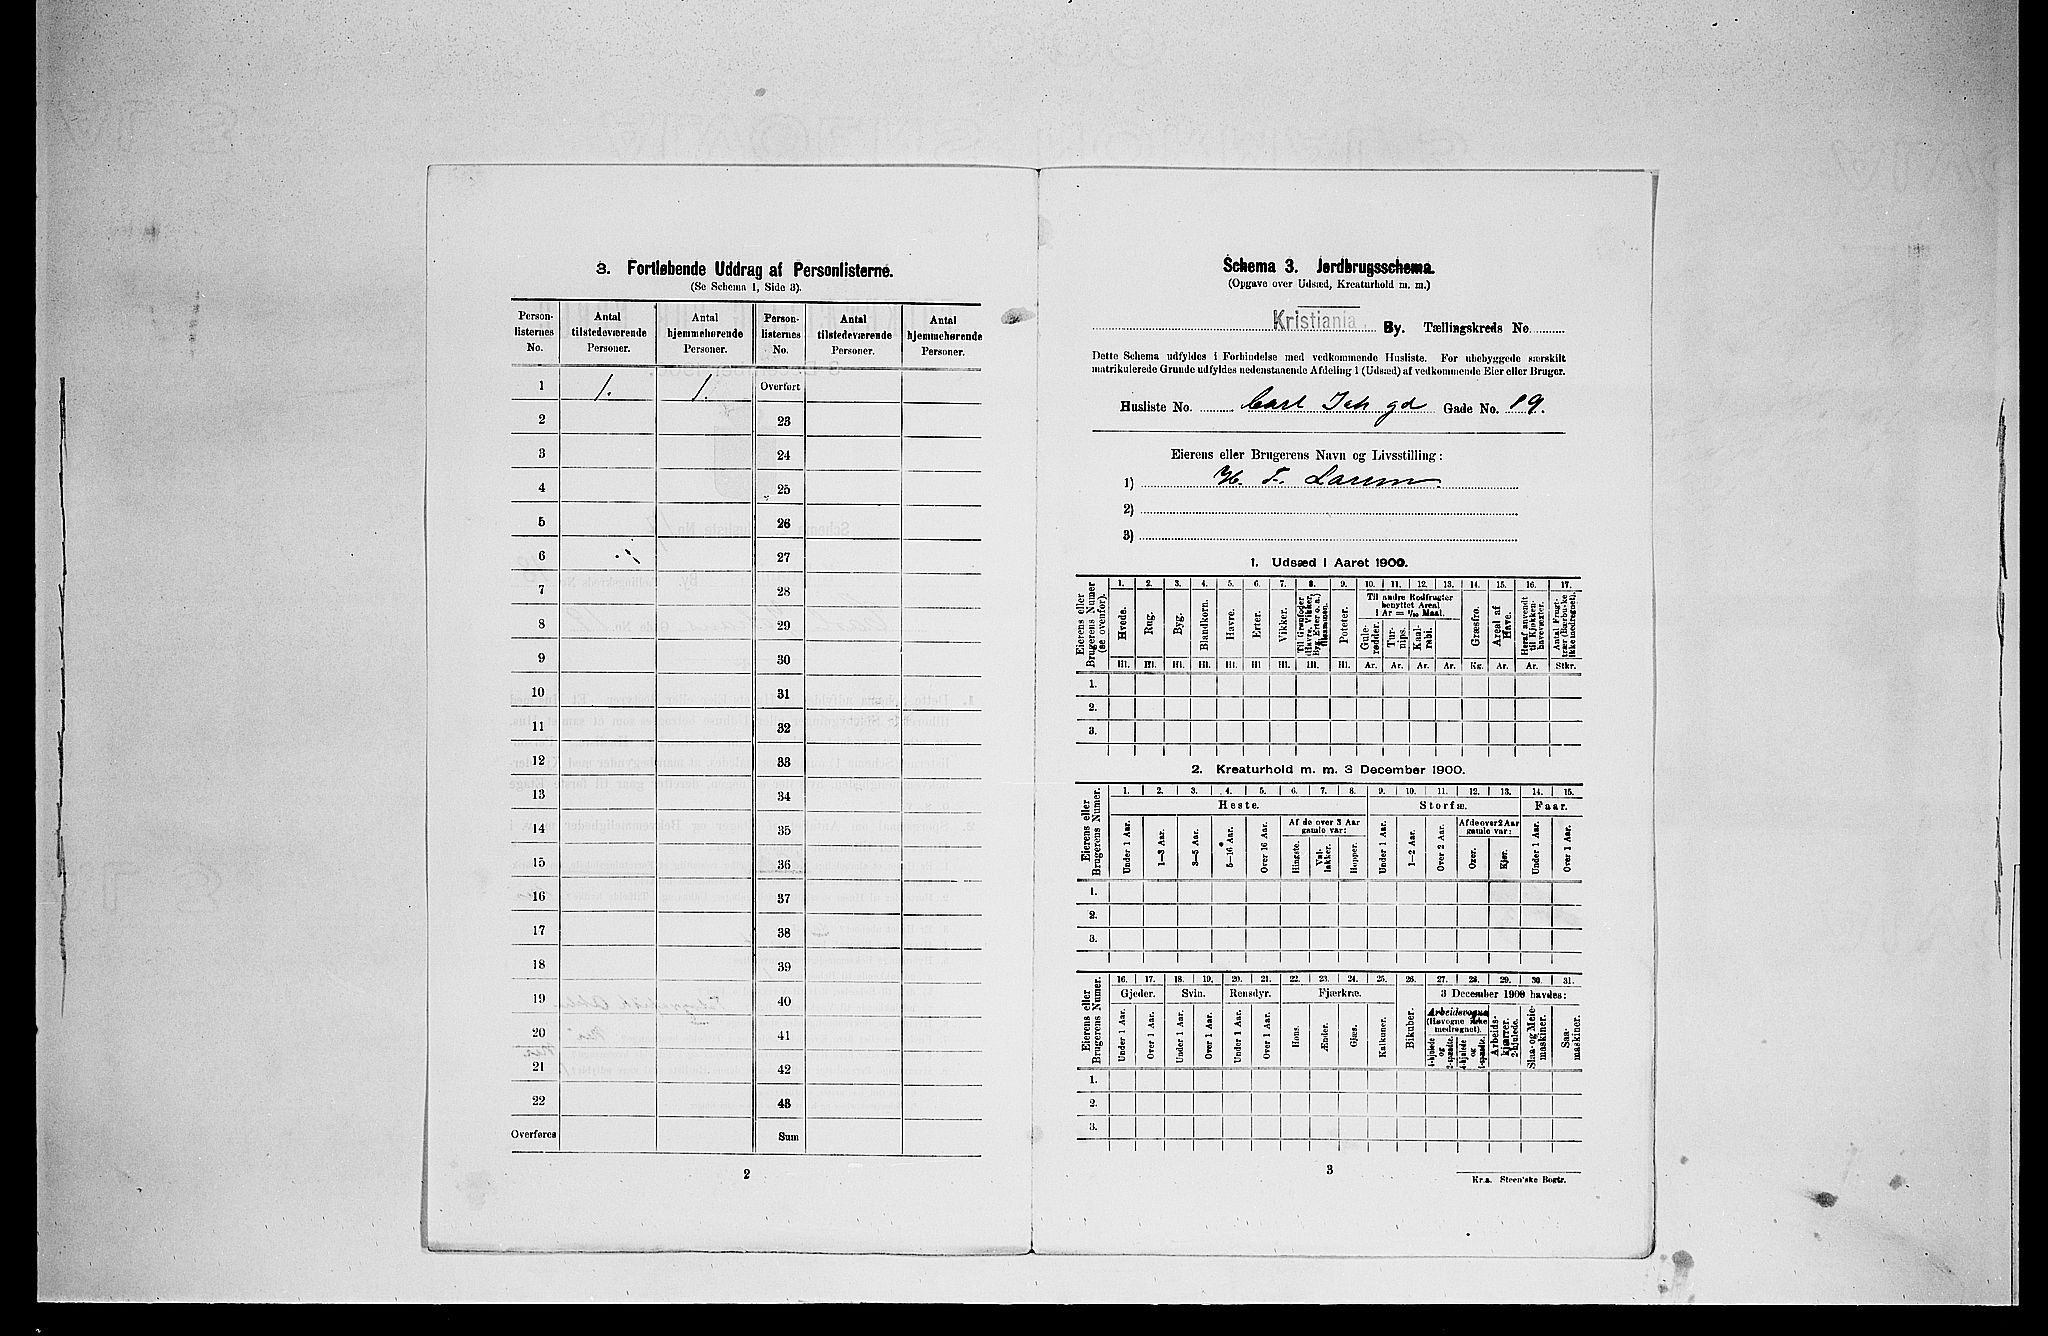 3. Fortløbende Uddrag af Personlisterne.
(Se Schema 1, Side 3).
Person-listernes No. Antal tilstedeværende Personer. Antal hjemmehørende Personer. Person-listernes No. Antal tilstedeværende Personer. Antal hjemmehørende Personer.
1 1. 1. Overført
2 23
3 24
4 25
5 26
6 27
7 28
8 29
9 30
10 31
11 32
12 33
13 34
14 35
15 36
16 37
17 38
18 39
19 40
20 41
21 42
22 43
Overføres Sum
2
Schema 3. Jordbrugsschema.
(Opgave over Udsæd, Kreaturhold m. m.)
Kristiania By. Tællingskreds No
Dette Schema udfyldes i Forbindelse med vedkommende Husliste. For ubebyggede særskilt
matrikulerede Grunde udfyldes nedenstaaende Afdeling 1 (Udsæd) af vedkommende Eier eller Bruger.
Husliste No. Carl Joh gd Gade No. 19.
Eierens eller Brugerens Navn og Livsstilling:
1) H. F. Larsen
2)
3)
1. Udsæd i Aaret 1900.
Eierens eller Brugerens Numer (se ovenfor).
1. 2. 3. 4. 5. 6. 7. 8. 9. 10. 11. 12. 13. 14. 15. 16. 17.
Hvede. Rug. Byg. Blandkorn. Havre. Erter. Vikker. Til Grønfoder (Havre, Vikker, Byg, Erter o. a.) tilsammen. Poteter. Til andre Rodfrugter benyttet Areal 1 Ar = 1/10 Maal. Gule-rødder. Tur-nips. Kaal-rabi. Græsfrø. Areal af Have. Heraf anvendt til Kjøkken-havevæxter. Antal Frugt-trær (Bærbuske ikke medregnet).
Hl. Hl. Hl. Hl. Hl. Hl Hl. Hl. Hl. Ar. Ar. Ar. Ar. Kg. Ar. Ar. Stkr.
1.
2.
3.
2. Kreaturhold m. m. 3 December 1900.
Eierens eller Brugerens Numer.
1. 2. 3. 4. 5. 6. 7. 8. 9. 10. 11. 12. 13. 14. 15.
Heste. Storfæ. Faar.
Under 1 Aar. 1—3 Aar. 3—5 Aar. 5—16 Aar. Over 16 Aar. Af de over 3 Aar gamle var: Hingste. Val-lakker. Hopper. Under 1 Aar. 1—2 Aar. Over 2 Aar. Af de over 2 Aar gamle var: Oxer. Kjør. Under 1 Aar. Over 1 Aar.
1.
2.
3.
Eierens eller Brugerens Numer.
16. 17. 18. 19. 20. 21. 22. 23. 24. 25. 26. 27. 28. 29. 30. 31.
Gjeder. Svin. Rensdyr. Fjærkræ. Bikuber. 3 December 1900 havdes:
Under 1 Aar. Over 1 Aar. Under 1 Aar. Over 1 Aar. Under 1 Aar. Over 1 Aar. Høns. Ænder. Gjæs. Kalkuner. Arbeidsvogne (Høvogne ikke medregnet). 4-hjulede og 2-spændte. 4-hjulede og 1-spændte. Arbeids-kjærrer, 2-hjulede. Slaa- og Meie-maskiner. Saa-maskiner.
1.
2.
3.
3
Kr.a. Steen'ske Bogtr.